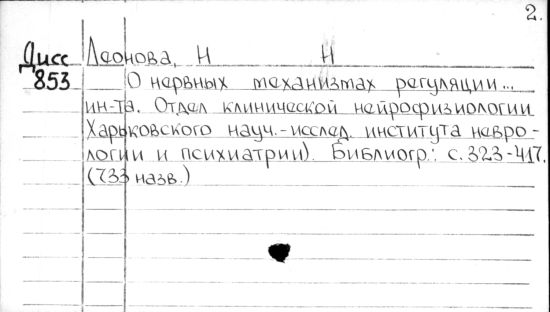 2.
Дисс Леонова, Н Н
853 О нервных механизмах регуляции...
ин-та. Отдел клинической нейрофизиологии
Харьковского науч.-исслед. института невро-
логии и психиатрии). Библиогр.: с. 323-417.
(733 назв.)